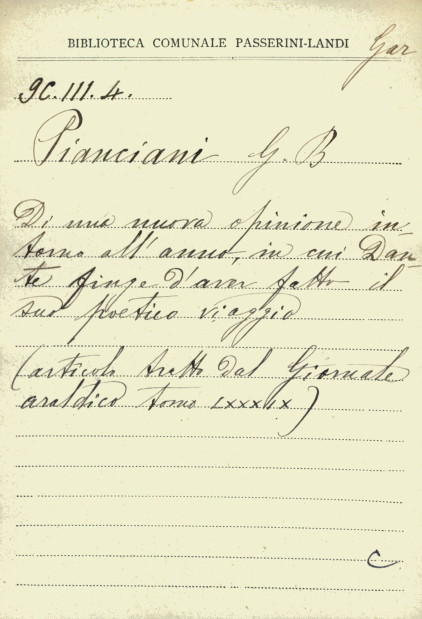 BIBLIOTECA COMUNALE PASSERINI-LANDI
Gar
9C.III.4.
Pianciani G. B
Di una nuova opinione in-
torno all'anno, in cui Dan-
te finge d'aver fatto il
suo poetico viaggio
(articolo tratto dal Giornale
araldico tomo LXXXIX)
C